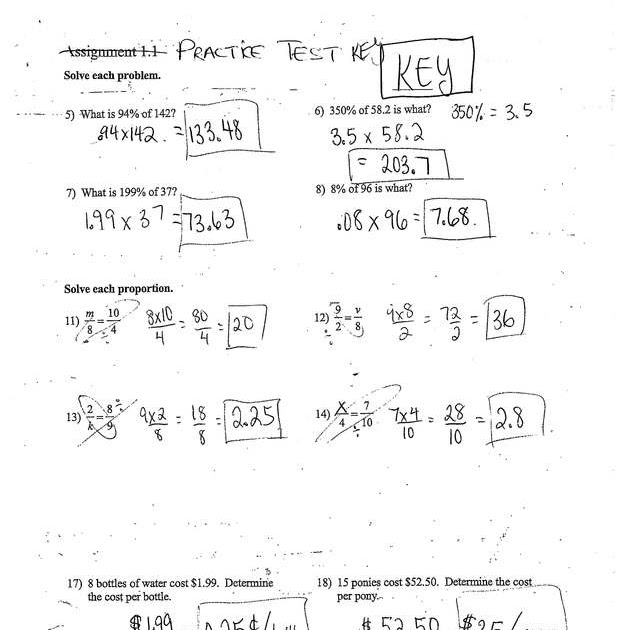 Assignment 1.1 PRACTICE TEST KEY
KEY
Solve each problem.
5) What is 94% of 142?
.94x142 = 133.48
6) 350% of 58.2 is what? 350% = 3.5
3.5 x 58.2
= 203.7
7) What is 199% of 37?
1.99 x 37 = 73.63
8) 8% of 96 is what?
.08 x 96 = 7.68
Solve each proportion.
11) m/8 = 10/4 8x10/4 = 80/4 = 20
12) 9/2 = v/8 9x8/2 = 72/2 = 36
13) 2/k = 8/9 9x2/8 = 18/8 = 2.25
14) x/4 = 7/10 7x4/10 = 28/10 = 2.8
17) 8 bottles of water cost $1.99. Determine
the cost per bottle.
$1.99
18) 15 ponies cost $52.50. Determine the cost
per pony.
$52.50